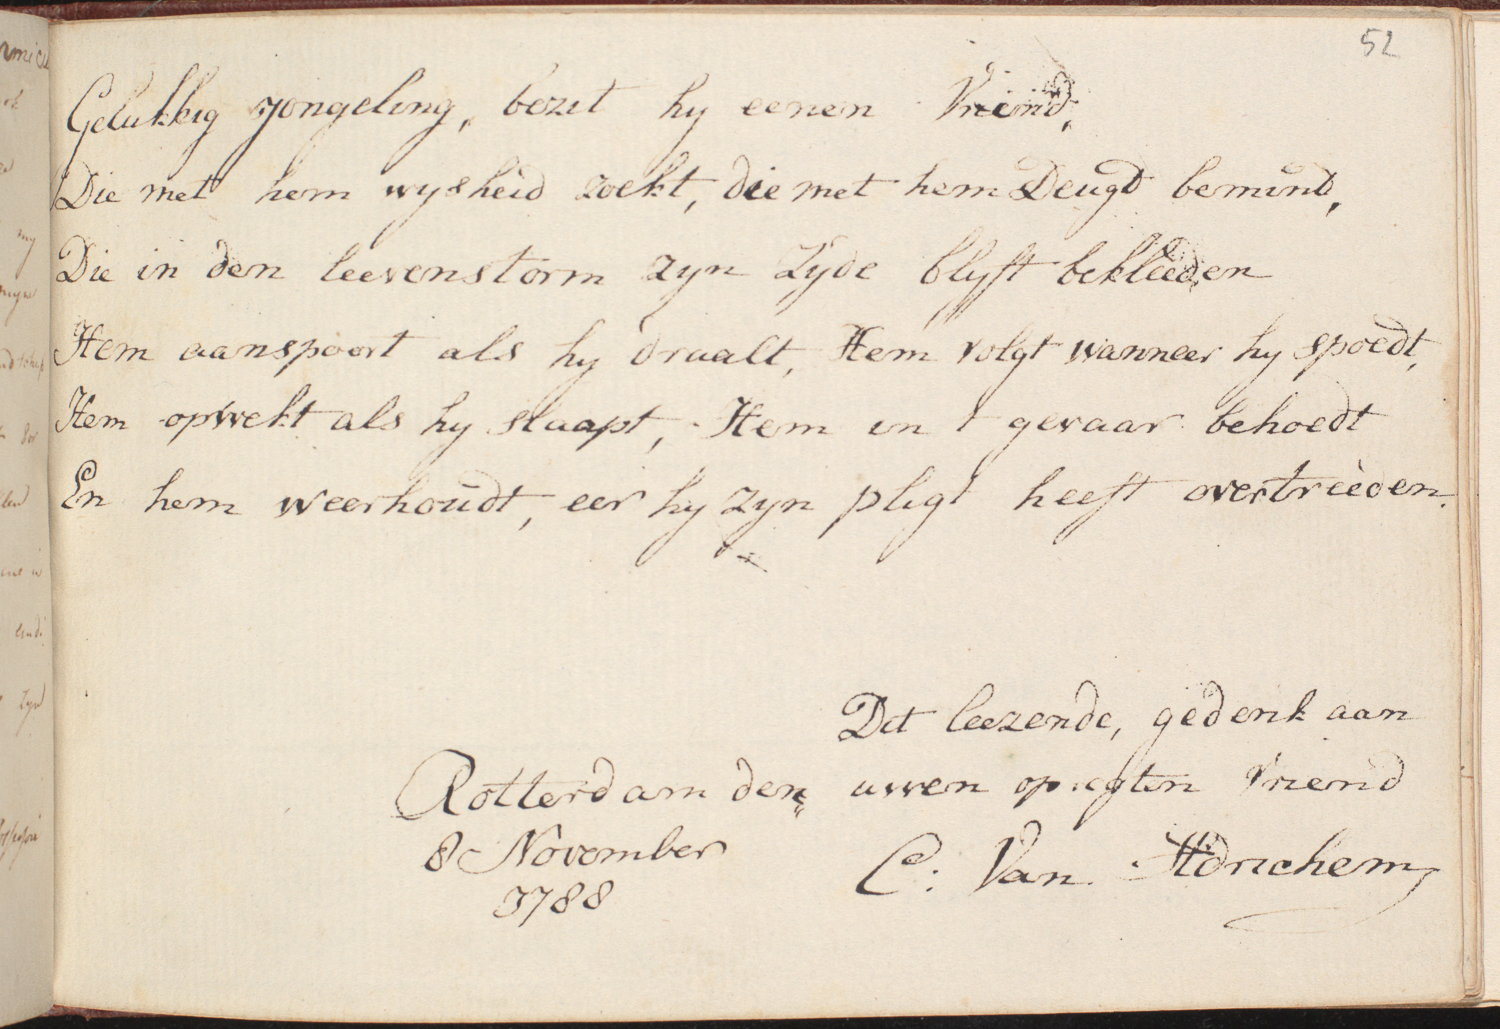 52
Gelukkig jongeling, bezit hy eenen Vriend,
Die met hem wysheid zoekt, die met hem Deugd bemind,
Die in den leevenstorm zyn zyde blyft bekleeden
Hem aanspoort als hy draalt, Hem volgt wanneer hy spoedt,
Hem opwekt als hy slaapt, Hem in t gevaar behoedt
En hem weerhoudt, eer hy zyn pligt heeft overtreeden.
Dit leezende, gedenk aan
uwen opregten Vriend
C: Van Adrichem
Rotterdam den
8 November
1788